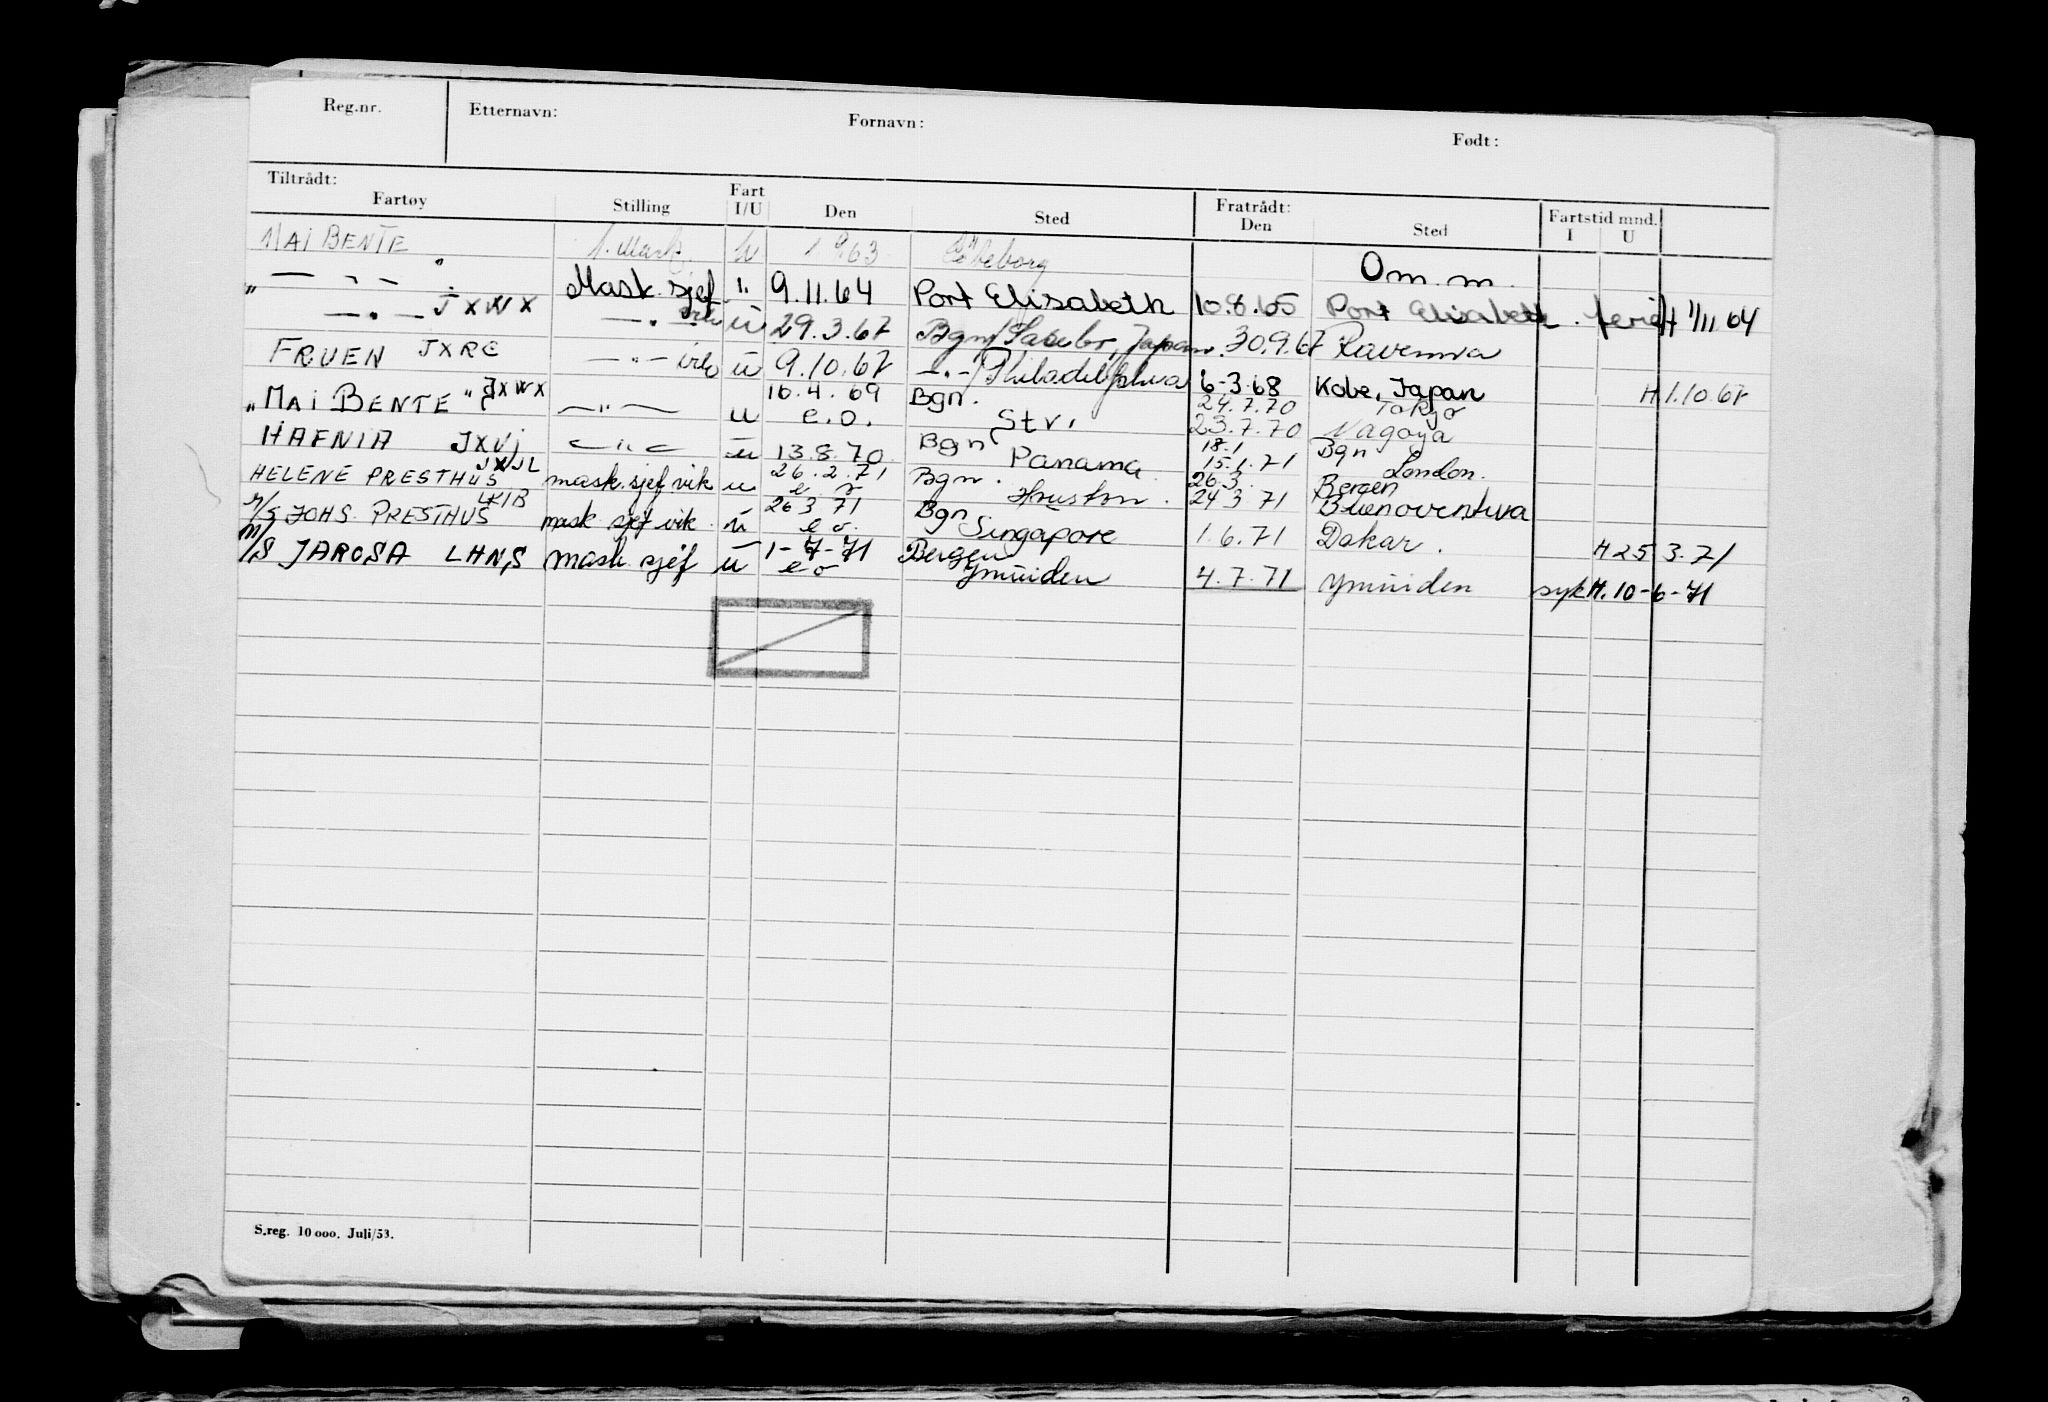 Reg.nr. Etternavn: Fornavn: Født:
Tiltrådt: Fartøy Stilling Fart I/U Den Sted Fratrådt: Den Sted Fartstid mnd. I U
MAI BENTE 1. Mask. u 1963 Göteborg Om. m.
" — " — " Mask. sjef " 9.11.64 Port Elisabeth 10.8.65 Port Elisabeth. ferie H 1/11 64
— " — JXWX — " — vik u 29.3.67 Bgn/ Japan. 30.9.67 Ravenna
FRUEN JXRE — " — vik u 9.10.67 — " — / Philadelphia 6-3.68 Kobe, Japan H 1.10.67
" MAI BENTE " JXWX — " — u 16.4.69 e.o. Bgn. Stv. 24.7.70 23.7.70 Tokyo Nagoya
HAFNIA JXVj — " — u 13.8.70 Bgn Panama 18.1 15.1.71 Bgn London.
HELENE PRESTHUS JXJL mask. sjef vik u 26.2.71 e o Bgn. Houston. 26.3. 24.3.71 Bergen Buenoventura
M/S JOHS. PRESTHUS LKIB mask sjef vik. u 26 3 71 e o. Bgn Singapore 1.6.71 Dakar. H 25 3.71
M/S JAROSA LHNS mask. sjef u 1-7-71 e o Bergen Ymuiden 4.7.71 Ymuiden syk H. 10-6-71
S.reg. 10 000. Juli/53.